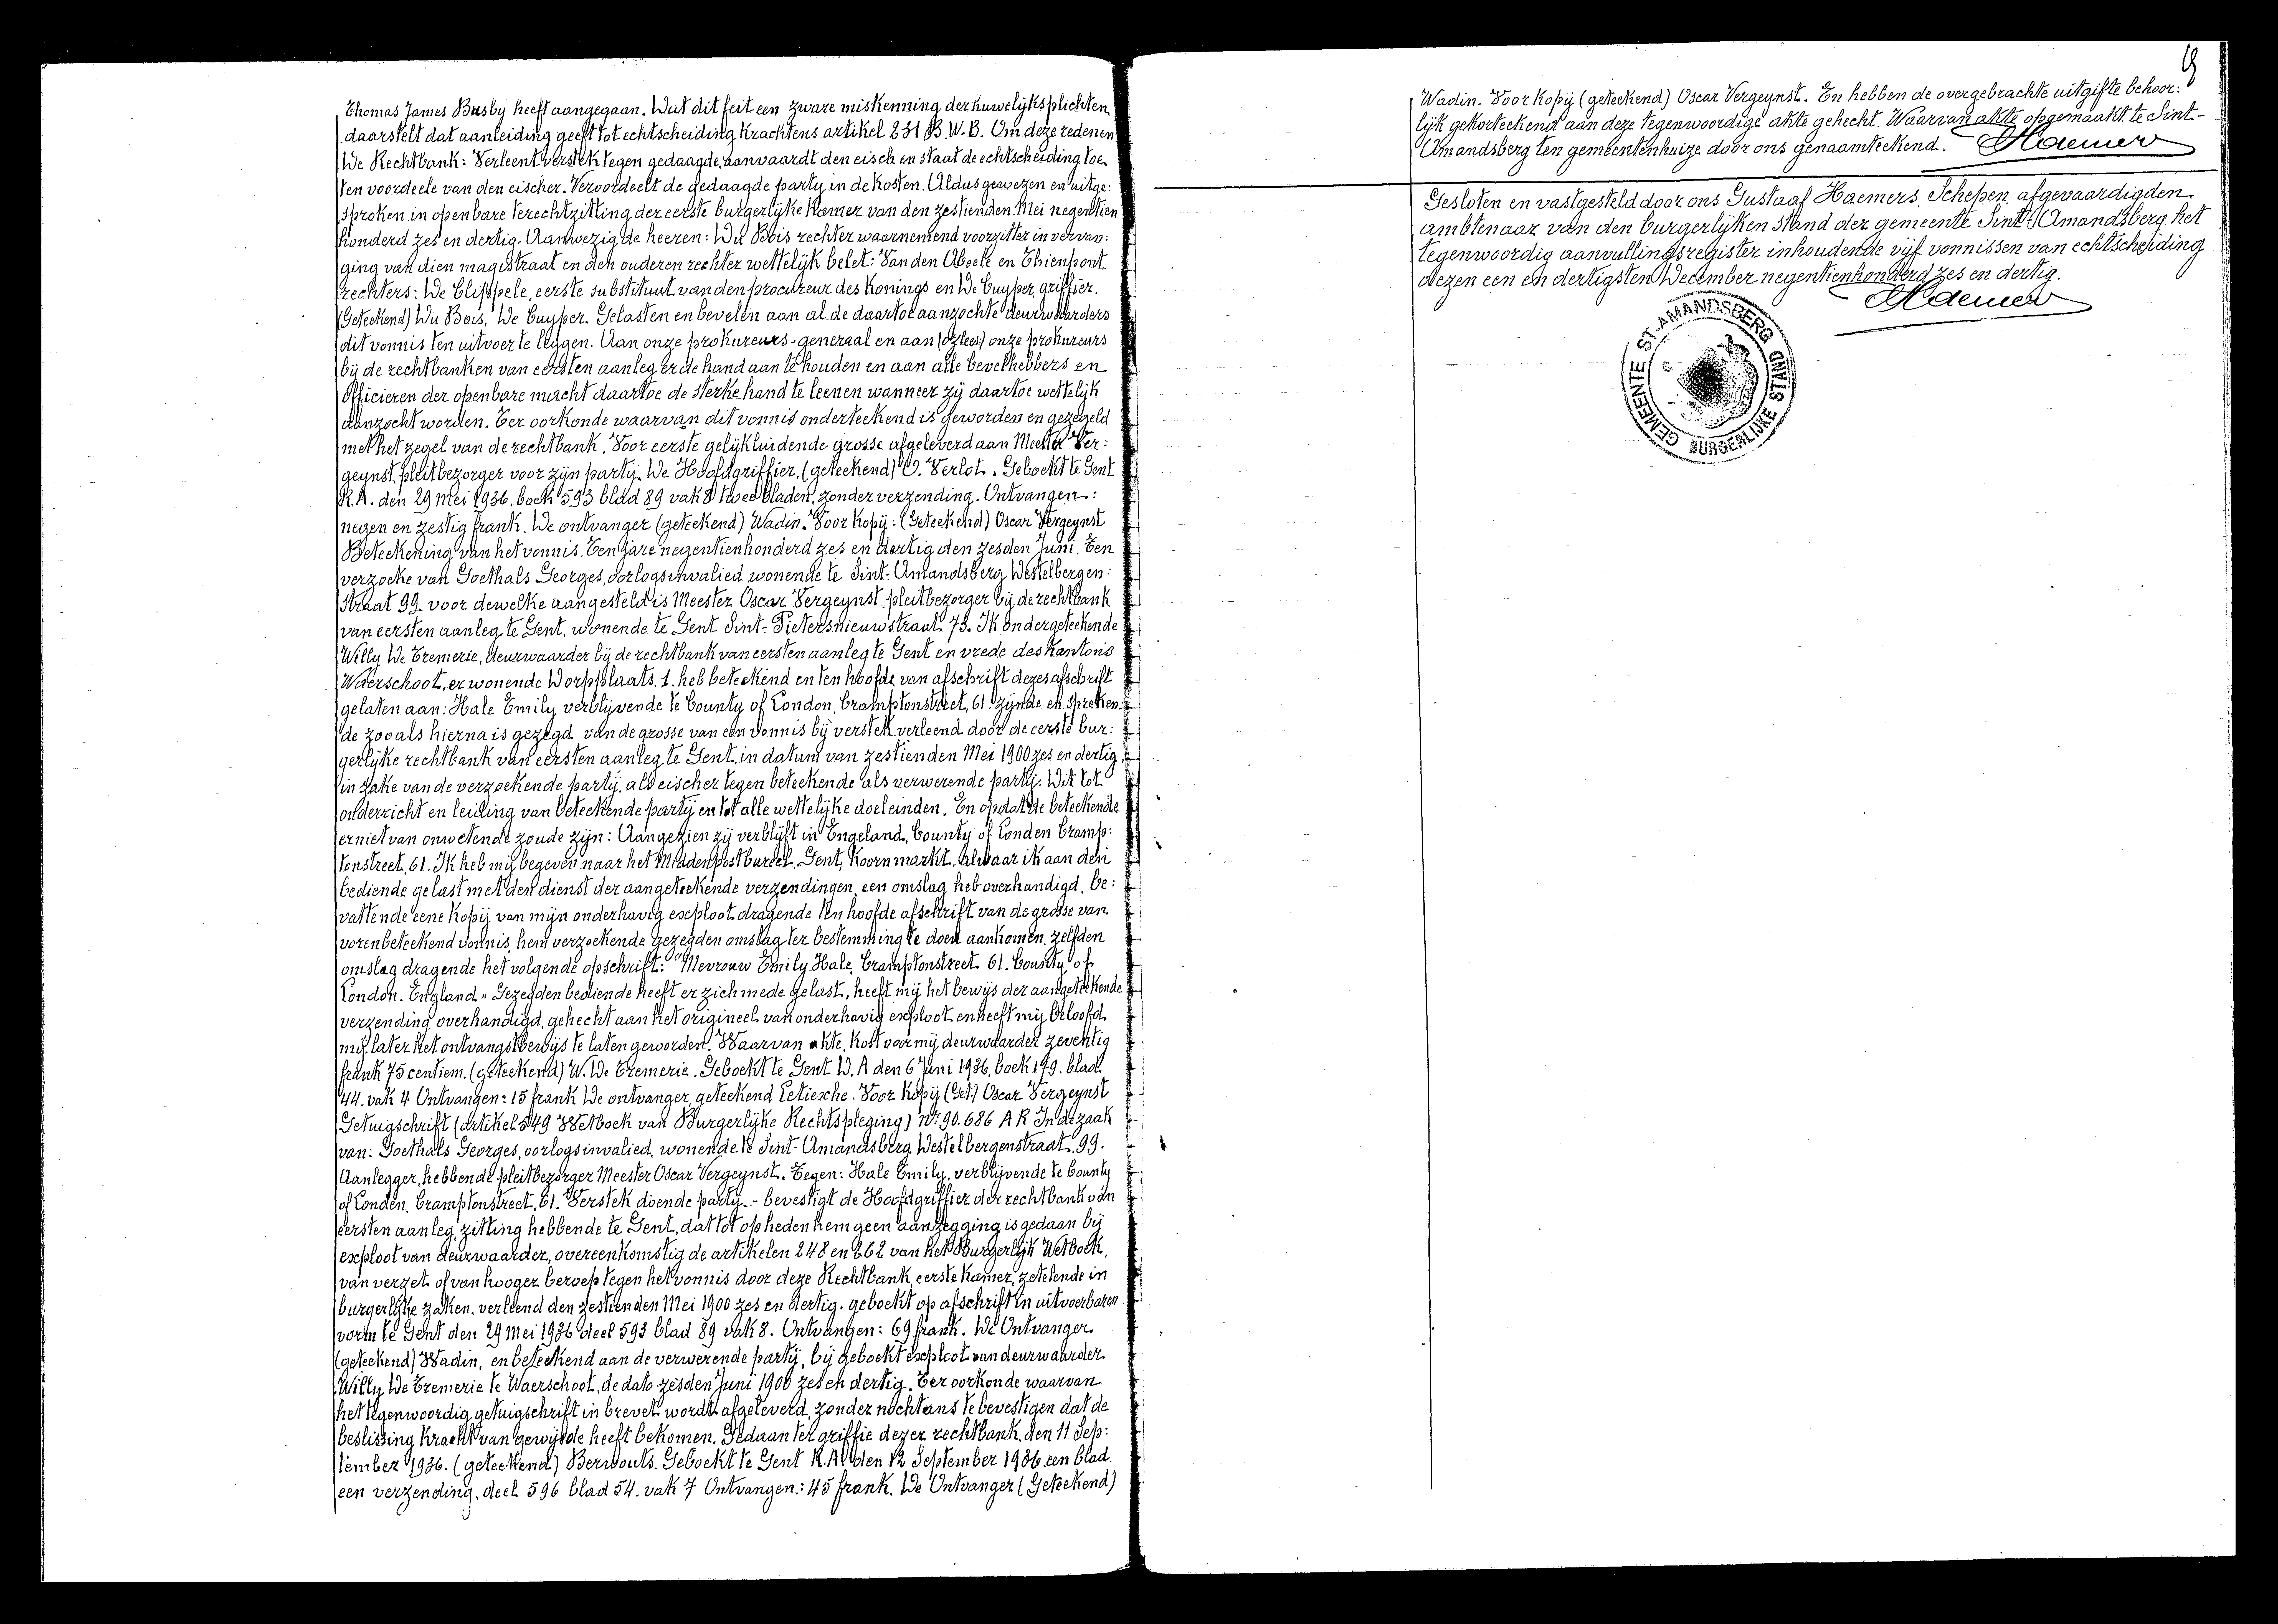 Thomas James Busby heeft aangegaan. Dat dit feit een zware miskenning der huwelijksplichten
daarstelt dat aanleiding geeft tot echtscheiding krachtens artikel 231 B.W.B. Om deze redenen
De Rechtbank: Verleent verstek tegen gedaagde, aanvaardt den eisch en staat de echtscheiding toe
ten voordeele van den eischer. Veroordeelt de gedaagde party in de kosten. Aldus gewezen en uitge:
sproken in openbare terechtzitting der eerste burgerlyke kamer van den zestienden Mei negentien
honderd zes en dertig. Aanwezig de heeren: Du Bois rechter waarnemend voorzitter in vervan:
ging van dien magistraat en den ouderen rechter wettelijk belet: Van den Abeele en Thienpont
rechters: De Clippele, eerste substituut van den procureur des Konings en De Cuyper, griffier.
(Geteekend) Du Bois. De Cuyper. Gelasten en bevelen aan al de daartoe aanzochte deurwaarders
dit vonnis ten uitvoer te leggen. Aan onze prokureurs-generaal en aan onze prokureurs
bij de rechtbanken van eersten aanleg er de hand aan te houden en aan alle bevelhebbers en
officieren der openbare macht daartoe de sterke hand te leenen wanneer zij daartoe wettelijk
aanzocht worden. Ter oorkonde waarvan dit vonnis onderteekend is geworden en gezegeld
met het zegel van de rechtbank. Voor eerste gelijkluidende grosse afgeleverd aan Meester Ver:
geynst, pleitbezorger voor zijn partij. De Hoofdgriffier, (geteekend) O. Verlot. Geboekt te Gent
R.A. den 29 Mei 1936. boek 593 blad 89 vak 8 twee bladen, zonder verzending. Ontvangen:
negen en zestig frank. De ontvanger (geteekend) Wadin. Voor kopij: (Geteekend) Oscar Vergeynst
Beteekening van het vonnis. Ten jare negentienhonderd zes en dertig den zesden Juni. Ten
verzoeke van Goethals Georges, oorlogsinvalied wonende te Sint-Amandsberg Destelbergen:
straat 99. voor dewelke aangesteld is Meester Oscar Vergeynst, pleitbezorger bij de rechtbank
van eersten aanleg te Gent. wonende te Gent Sint-Pietersnieuwstraat 73. Ik ondergeteekende
Willy De Tremerie, deurwaarder bij de rechtbank van eersten aanleg te Gent en vrede des kantons
Waerschoot, er wonende Dorpplaats. 1. heb beteekend en ten hoofde van afschrift dezes afschrift
gelaten aan: Hale Emily verblijvende te County of London, Cramptonstreet, 61. zijnde en spreken:
de zooals hierna is gezegd van de grosse van een vonnis bij verstek verleend door de eerste bur:
gerlijke rechtbank van eersten aanleg te Gent, in datum van zestienden Mei 1900 zes en dertig
in zake van de verzoekende partij, als eischer tegen beteekende als verwerende partij. Dit tot
onderricht en leiding van beteekende partij en tot alle wettelijke doeleinden. En opdat de beteekende
er niet van onwetende zoude zijn: Aangezien zij verblijft in Engeland, County of Londen Cramp:
tonstreet, 61. Ik heb mij begeven naar het Middenpostbureel. Gent, Koornmarkt. alwaar ik aan den
bediende gelast met den dienst der aangeteekende verzendingen, een omslag heb overhandigd, be:
vattende eene kopij van mijn onderhavig exploot dragende ten hoofde afschrift van de grosse van
vorenbeteekend vonnis, hem verzoekende gezegden omslag ter bestemming te doen aankomen, zelfden
omslag dragende het volgende opschrift: "Mevrouw Emily Hale, Cramptonstreet 61. County of
London. England" Gezegden bediende heeft er zich mede gelast, heeft mij het bewijs der aangeteekende
verzending overhandigd, gehecht aan het origineel van onderhavig exploot en heeft mij beloofd
mij later het ontvangstbewijs te laten geworden. Waarvan akte, kost voor mij deurwaarder zeventig
frank 75 centiem. (geteekend) W. De Tremerie. Geboekt te Gent D.A den 6 Juni 1936. boek 179. blad
44. vak 4 Ontvangen: 15 frank De ontvanger, geteekend Letiexhe. Voor kopij (Get.) Oscar Vergeynst
Getuigschrift (artikel 549 Wetboek van Burgerlijke Rechtspleging) Nr 90.686 A R In de zaak
van: Goethals Georges, oorlogsinvalied, wonende te Sint-Amandsberg Destelbergenstraat, 99.
Aanlegger, hebbende pleitbezorger Meester Oscar Vergeynst. Tegen: Hale Emily, verblijvende te County
of Londen. Cramptonstreet, 61. Verstek doende partij. - bevestigt de Hoofdgriffier der rechtbank van
eersten aanleg, zitting hebbende te Gent, dat tot op heden hem geen aanzegging is gedaan bij
exploot van deurwaarder, overeenkomstig de artikelen 248 en 262 van het Burgerlijk Wetboek,
van verzet of van hooger beroep tegen het vonnis door deze Rechtbank, eerste kamer, zetelende in
burgerlijke zaken, verleend den zestienden Mei 1900 zes en dertig. geboekt op afschrift in uitvoerbaren
vorm te Gent den 29 Mei 1936 deel 593 blad 89 vak 8. Ontvangen: 69 frank. De Ontvanger.
(geteekend) Wadin, en beteekend aan de verwerende partij, bij geboekt exploot van deurwaarder
Willy De Tremerie te Waerschoot, de dato zesden Juni 1900 zes en dertig. Ter oorkonde waarvan
het tegenwoordig getuigschrift in brevet wordt afgeleverd, zonder nochtans te bevestigen dat de
beslissing kracht van gewijsde heeft bekomen. Gedaan ter griffie dezer rechtbank, den 11 Sep:
tember 1936. (geteekend) Berwouts. Geboekt te Gent R.A. den 12 September 1936 een blad
een verzending, deel 596 blad 54. vak 7 Ontvangen: 45 frank. De Ontvanger (Geteekend)
Wadin. Voor kopij (geteekend) Oscar Vergeynst. En hebben de overgebrachte uitgifte behoor:
lijk gekorteekend aan deze tegenwoordige akte gehecht. Waarvan akte opgemaakt te Sint-
Amandsberg ten gemeentenhuize door ons genaamteekend. Haemers
Gesloten en vastgesteld door ons Gustaaf Haemers, Schepen, afgevaardigden
ambtenaar van den burgerlijken stand der gemeente Sint-Amandsberg het
tegenwoordig aanvullingsregister inhoudende vijf vonnissen van echtscheiding
dezen een en dertigsten December negentienhonderd zes en dertig.
Haemers
GEMEENTE ST-AMANDSBERG
BURGERLIJKE STAND